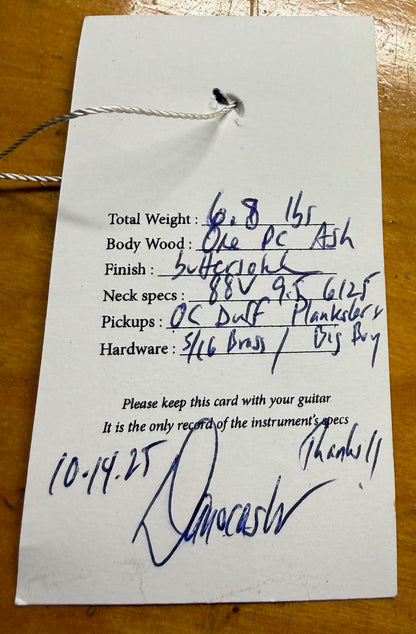 Total Weight : 6.8 lbs
Body Wood : One Pc Ash
Finish : butterscotch
Neck specs : 88V 9.5 6125
Pickups : OC Duff Planksters
Hardware : 5/16 Brass / Big Boy
Please keep this card with your guitar
It is the only record of the instrument's specs
10.14.25 Thanks!!
Danocaster